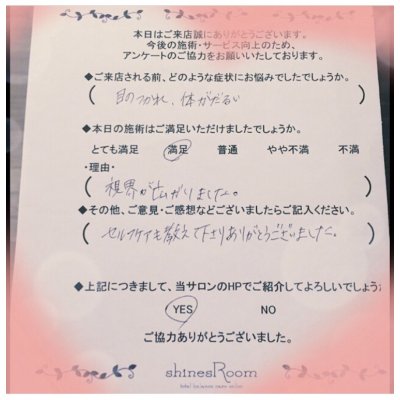 本日はご来店誠にありがとうございます。
今後の施術・サービス向上のため、
アンケートのご協力をお願いいたしております。
◆ご来店される前、どのような症状にお悩みでしたでしょうか。
(目のつかれ、体がだるい)
◆本日の施術はご満足いただけましたでしょうか。
とても満足 満足 普通 やや不満 不満
・理由・
(視界が広がりました。)
◆その他、ご意見・ご感想などございましたらご記入ください。
(セルフケアも教えて下さりありがとうございました。)
◆上記につきまして、当サロンのHPでご紹介してよろしいでしょうか
YES NO
ご協力ありがとうございました。
shinesRoom